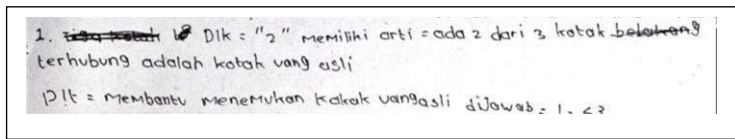 1. Dlk = "2" memiliki arti = ada 2 dari 3 kotak
terhubung adalah kotak yang asli
Dlt = membantu menemukan kakak yang asli dijawab =